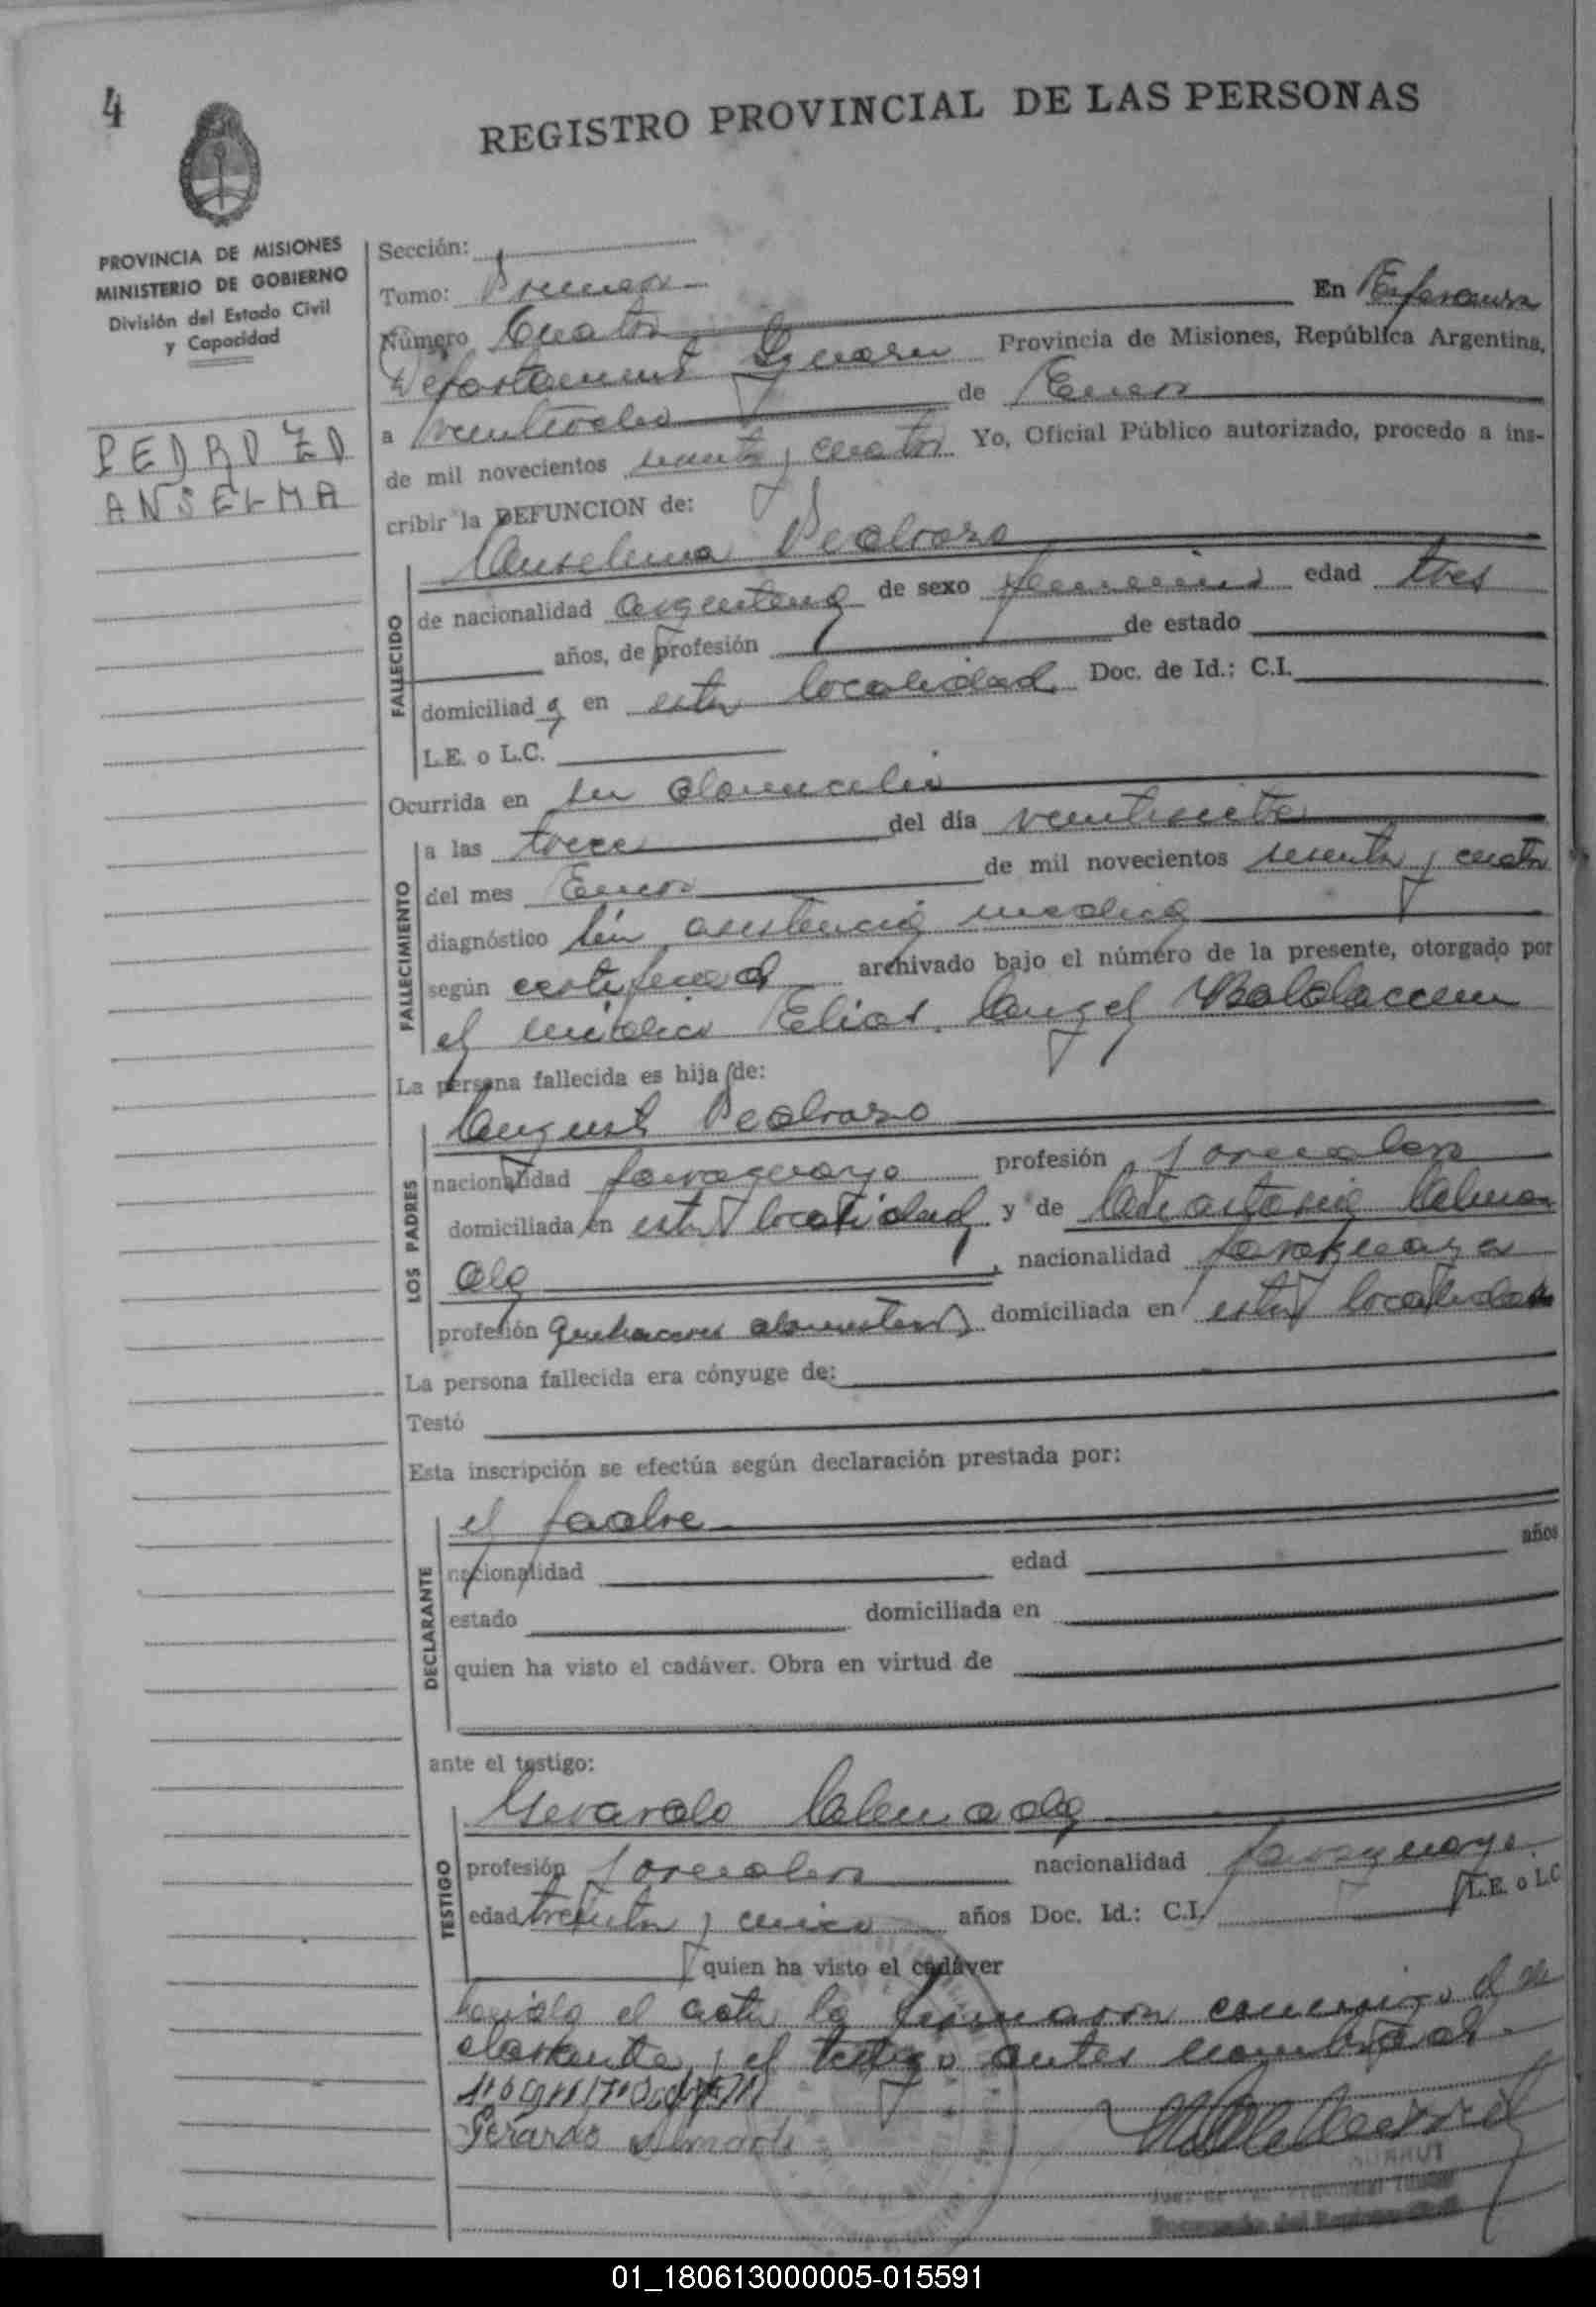 4
REGISTRO PROVINCIAL DE LAS PERSONAS
PROVINCIA DE MISIONES
MINISTERIO DE GOBIERNO
División del Estado Civil
y Capacidad
PEDROZO
ANSELMA
Sección:
Tomo: Primero
En Esperanza
Número Cuatro
Departamento Iguazu Provincia de Misiones, República Argentina,
a veintiocho de Enero
de mil novecientos sesenta y cuatro Yo, Oficial Público autorizado, procedo a ins-
cribir la DEFUNCION de:
Anselma Pedrozo
FALLECIDO
de nacionalidad argentina de sexo femenino edad tres
años, de profesión de estado
domiciliada en esta localidad Doc. de Id.: C.I.
L.E. o L.C.
Ocurrida en su domicilio
FALLECIMIENTO
a las trece del día veintisiete
del mes Enero de mil novecientos sesenta y cuatro
diagnóstico sin asistencia medica
según certificado archivado bajo el número de la presente, otorgado por
el médico Elias Angel
La persona fallecida es hija de:
LOS PADRES
Pedrozo
nacionalidad paraguayo profesión jornalero
domiciliada en esta localidad y de
da, nacionalidad paraguaya
profesión quehaceres domesticos domiciliada en esta localidad
La persona fallecida era cónyuge de:
Testó
Esta inscripción se efectúa según declaración prestada por:
DECLARANTE
el padre
nacionalidad edad años
estado domiciliada en
quien ha visto el cadáver. Obra en virtud de
ante el testigo:
TESTIGO
Gerardo Almada
profesión jornalero nacionalidad paraguayo
edad treinta y cinco años Doc. Id.: C.I. L.E. o L.C
quien ha visto el cadáver
el acta la firmaron conmigo el de
clarante y el testigo antes nombrado
Gerardo Almada
01_180613000005-015591